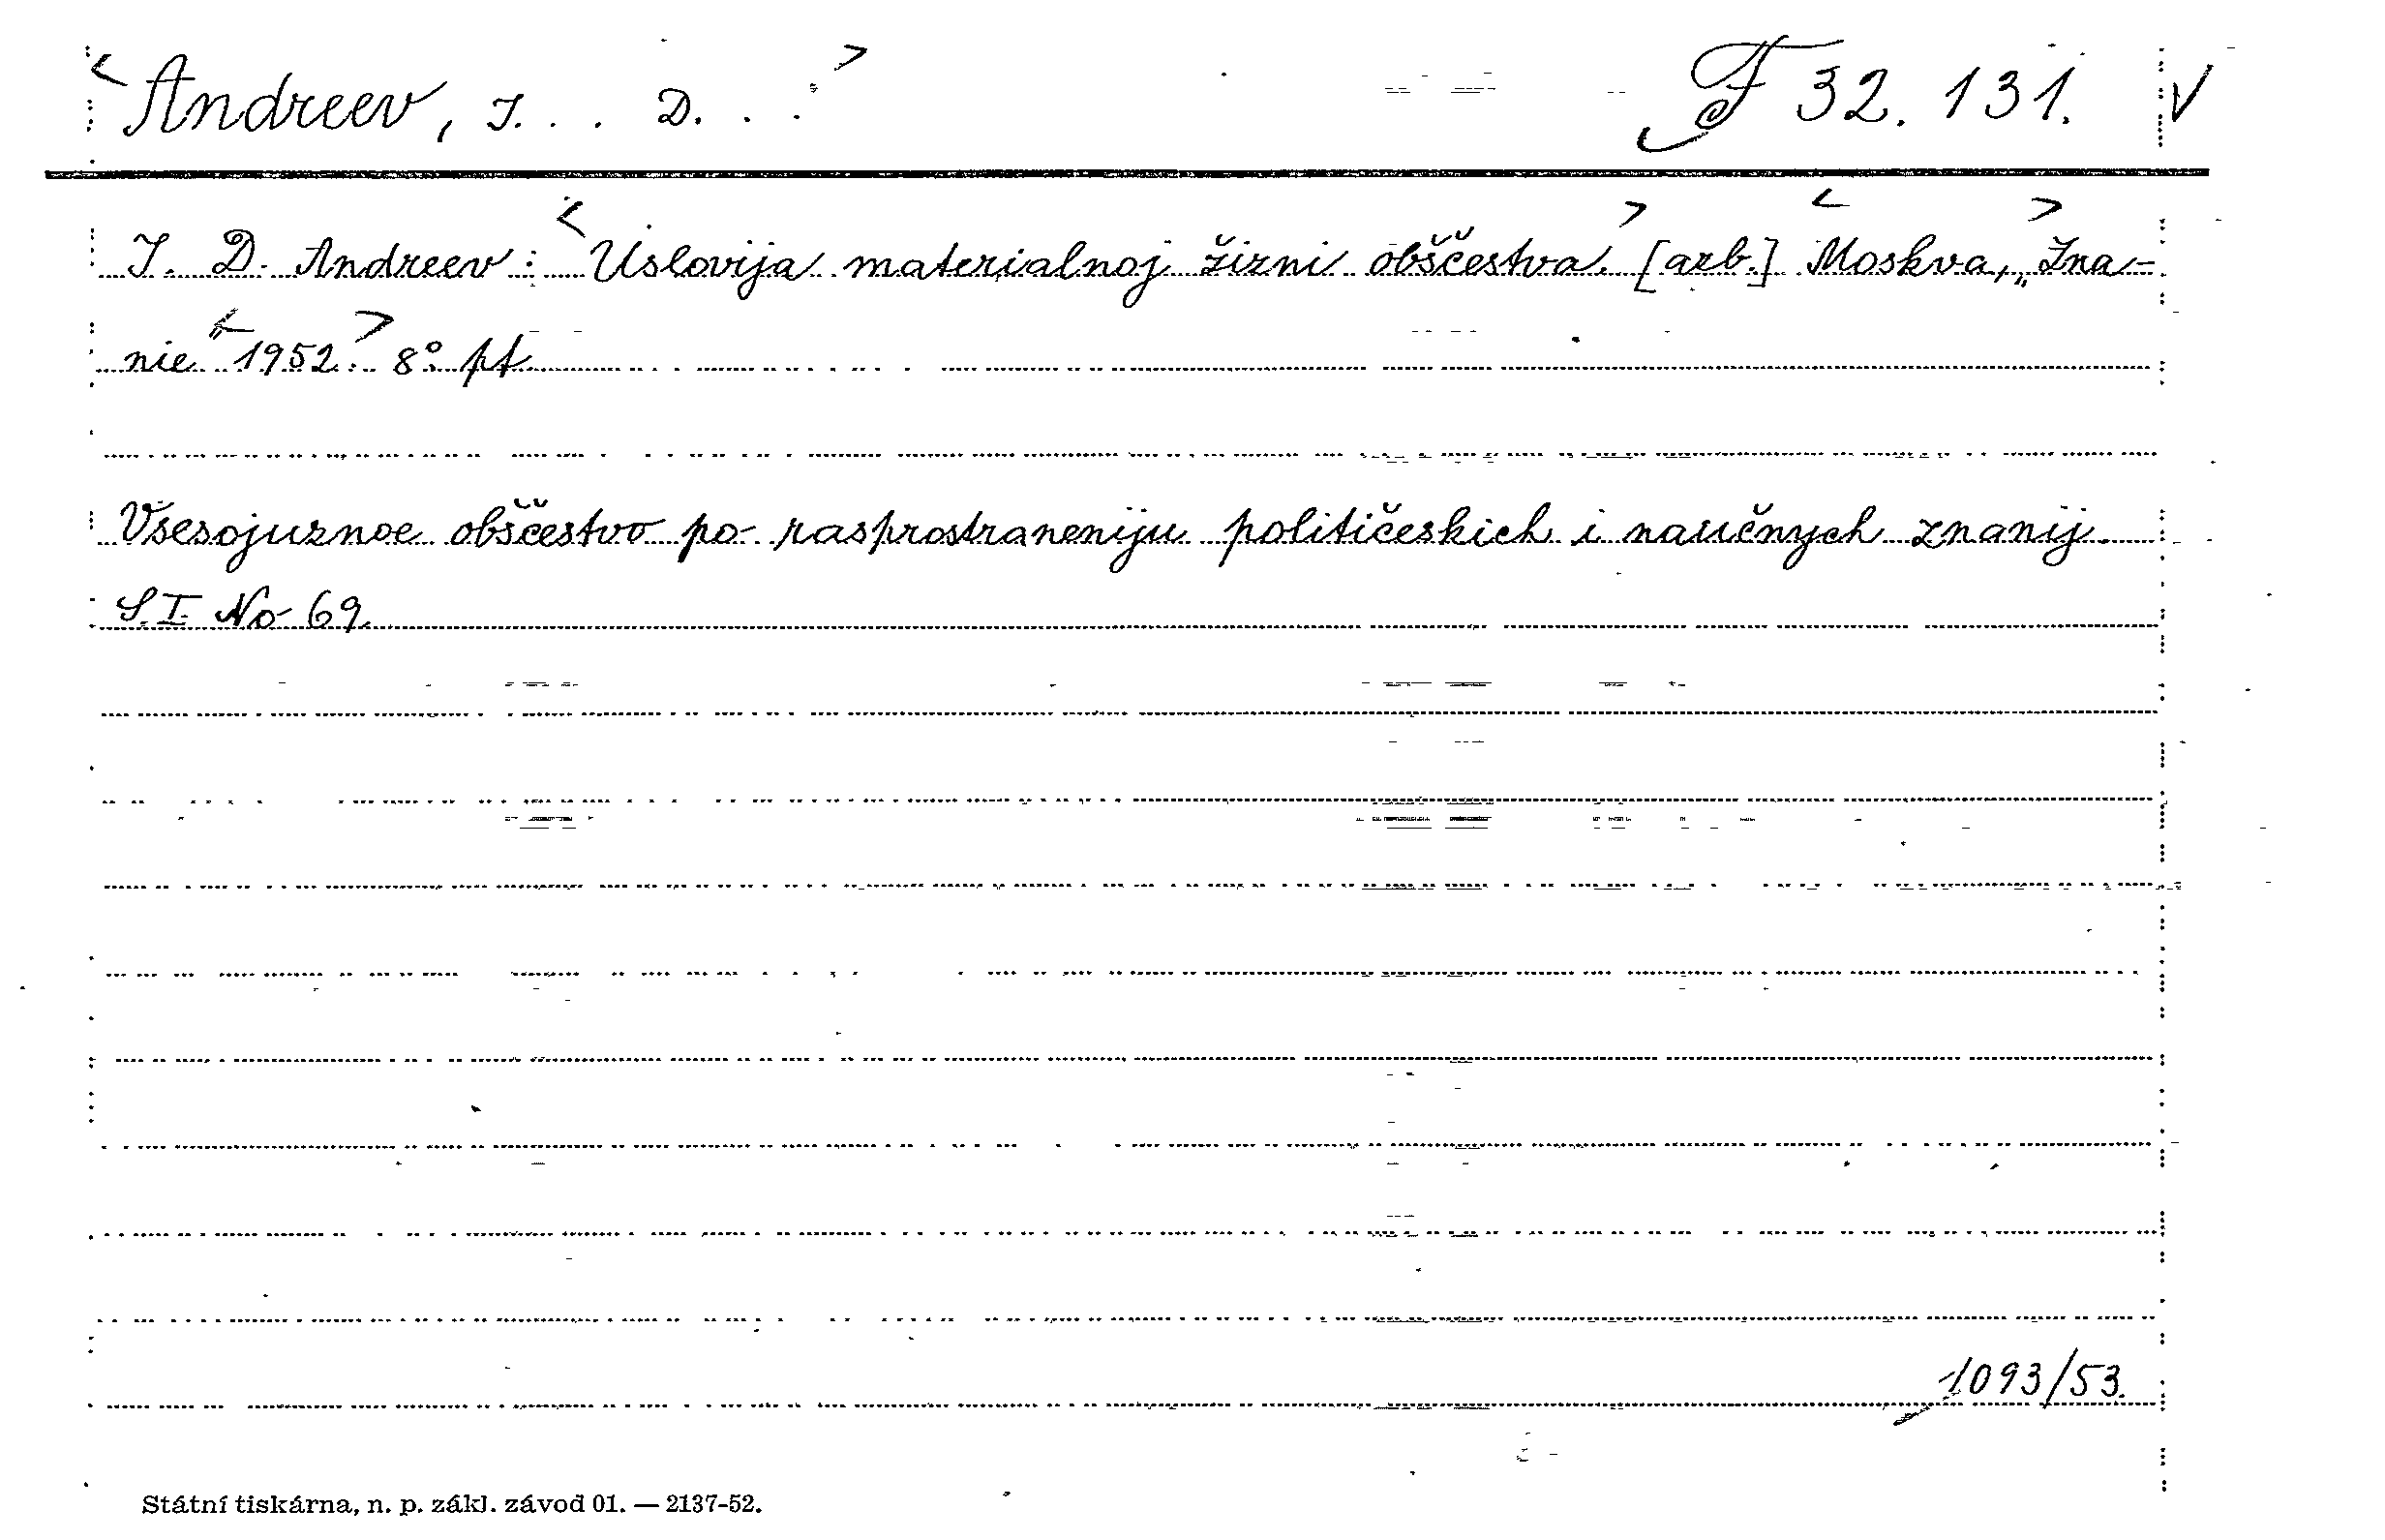 <Andreev, I. . . D. . .> F 32.131. V
I. D. Andreev: <Uslovija materialnoj žizni obščestva.> [azb.] <Moskva,> „Zna-
nie“ <1952.> 8° pf.
Vsesojuznoe obščestvo po rasprostraneniju političeskich i naučnych znanij.
S.I. No 69.
1093/53.
Státní tiskárna, n. p. zákl. závod 01. — 2137-52.